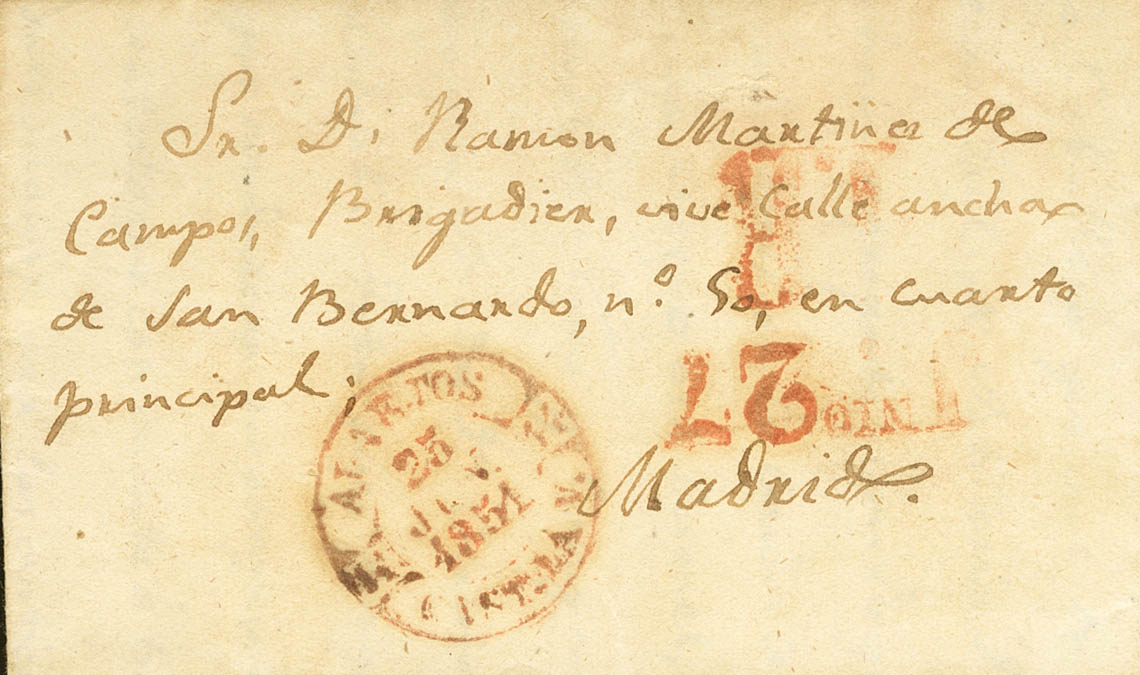 Sr. D. Ramon Martinez de
Campos, Brigadier, vive Calle ancha
de San Bernardo, n.º 50, en cuarto
principal;
Madrid.
25
1851
CAST. LA V.